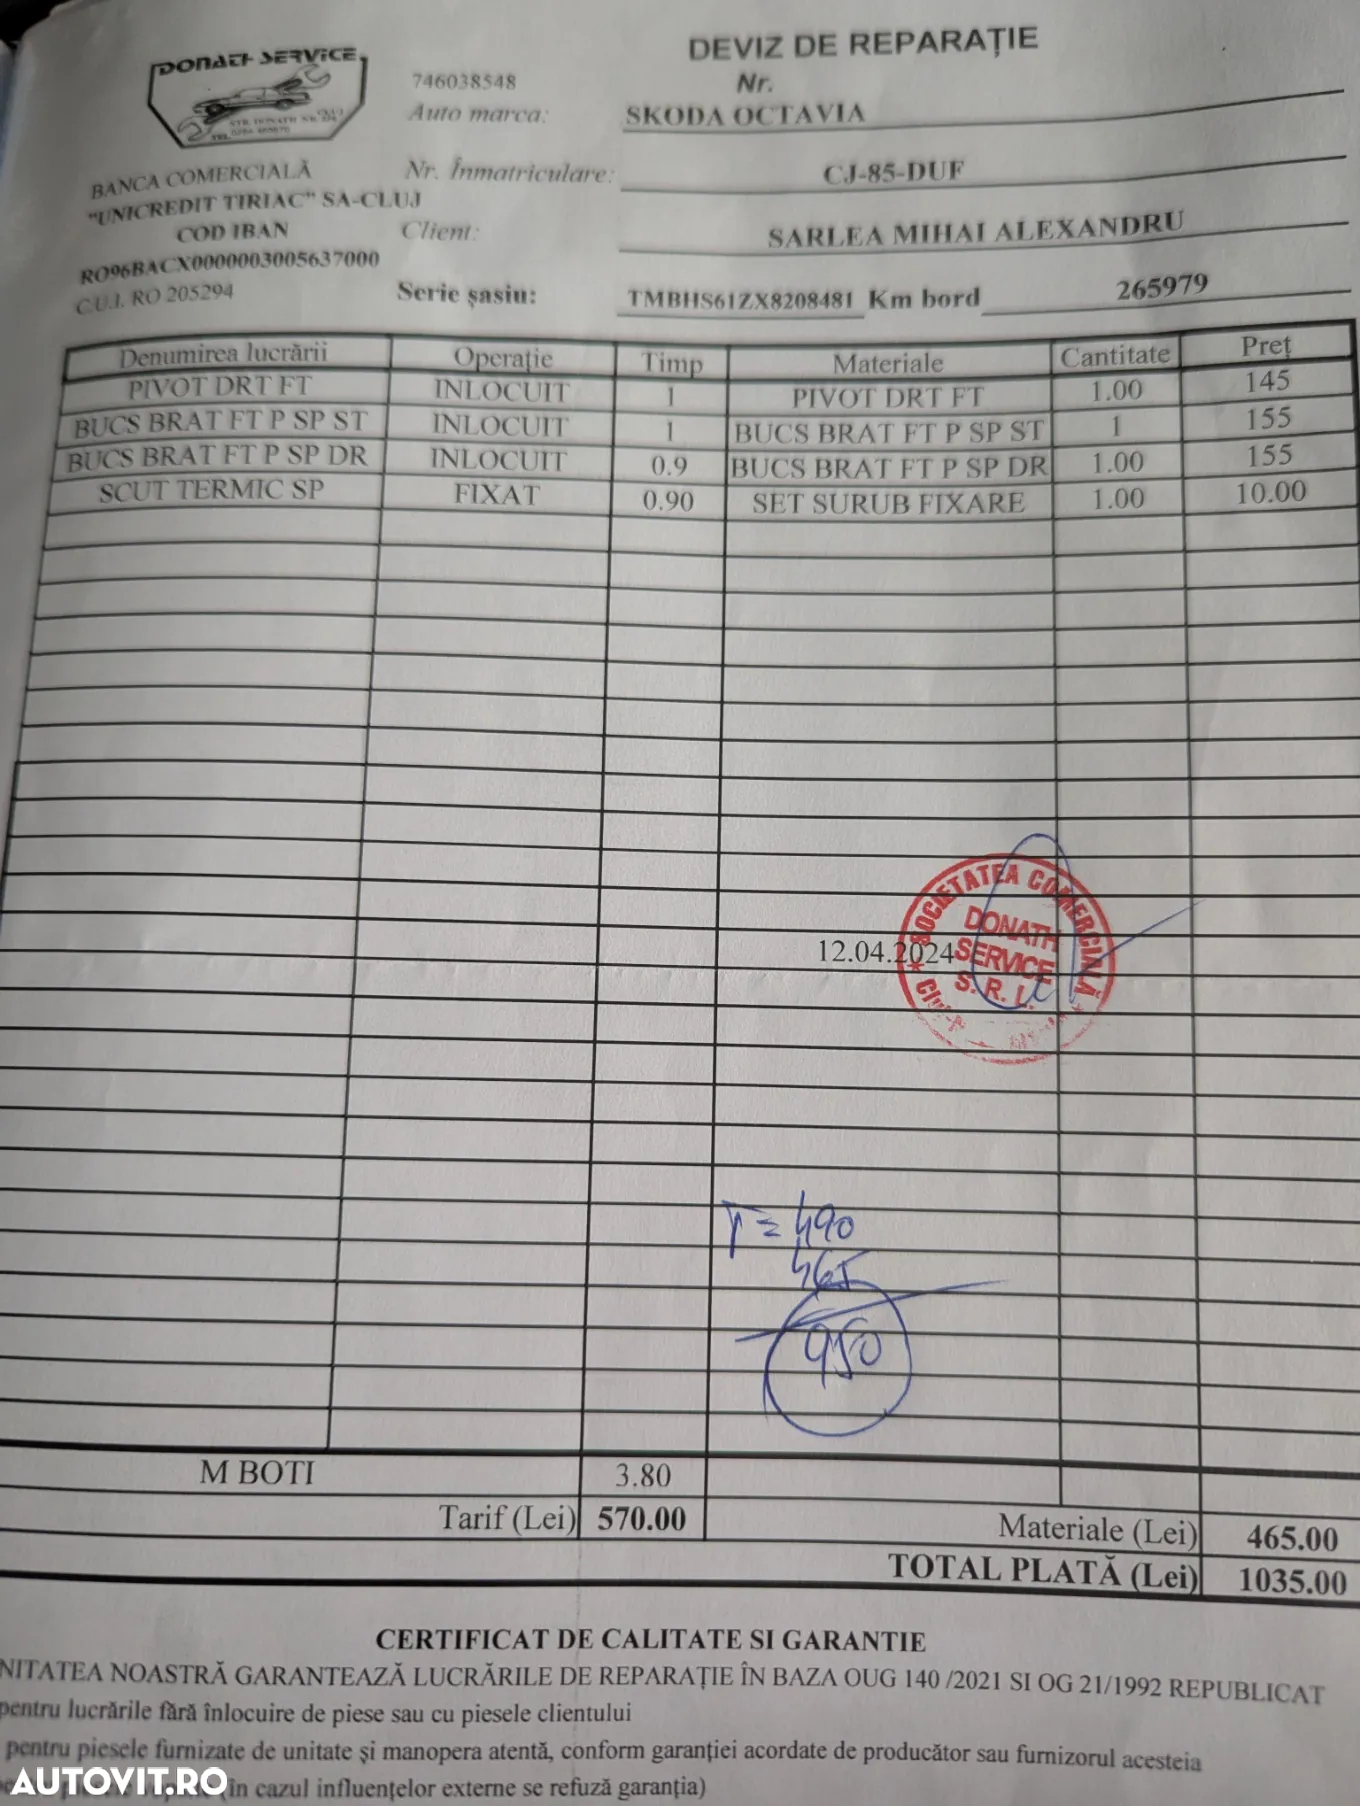 DONATH SERVICE
STR. DONATH NR.
746038548
DEVIZ DE REPARAȚIE
Nr.
Auto marca: SKODA OCTAVIA
BANCA COMERCIALĂ
Nr. Înmatriculare: CJ-85-DUF
"UNICREDIT TIRIAC" SA-CLUJ
COD IBAN
Client: SARLEA MIHAI ALEXANDRU
RO96BACX0000003005637000
C.U.I. RO 205294
Serie șasiu: TMBHS61ZX8208481 Km bord 265979
Denumirea lucrării Operație Timp Materiale Cantitate Preț
PIVOT DRT FT INLOCUIT 1 PIVOT DRT FT 1.00 145
BUCS BRAT FT P SP ST INLOCUIT 1 BUCS BRAT FT P SP ST 1 155
BUCS BRAT FT P SP DR INLOCUIT 0.9 BUCS BRAT FT P SP DR 1.00 155
SCUT TERMIC SP FIXAT 0.90 SET SURUB FIXARE 1.00 10.00
SOCIETATEA COMERCIALĂ
DONATH
12.04.2024 SERVICE
S.R.L.
T = 490
465
950
M BOTI 3.80
Tarif (Lei) 570.00 Materiale (Lei) 465.00
TOTAL PLATĂ (Lei) 1035.00
CERTIFICAT DE CALITATE SI GARANTIE
NITATEA NOASTRĂ GARANTEAZĂ LUCRĂRILE DE REPARAȚIE ÎN BAZA OUG 140 /2021 SI OG 21/1992 REPUBLICAT
pentru lucrările fără înlocuire de piese sau cu piesele clientului
pentru piesele furnizate de unitate și manopera atentă, conform garanției acordate de producător sau furnizorul acesteia
(in cazul influențelor externe se refuză garanția)
AUTOVIT.RO